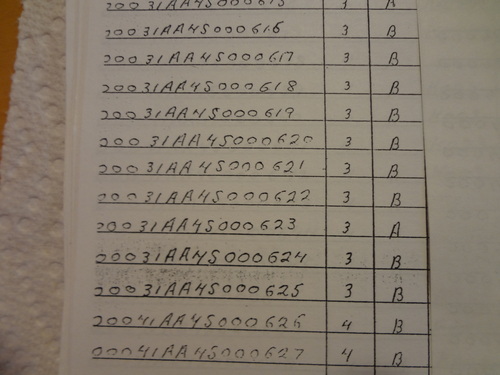 20031AA4S000615 3 B
20031AA4S000616 3 B
20031AA4S000617 3 B
20031AA4S000618 3 B
20031AA4S000619 3 B
20031AA4S000620 3 B
20031AA4S000621 3 B
20031AA4S000622 3 B
20031AA4S000623 3 A
20031AA4S000624 3 B
20031AA4S000625 3 B
20041AA4S000626 4 B
00041AA4S000627 4 B